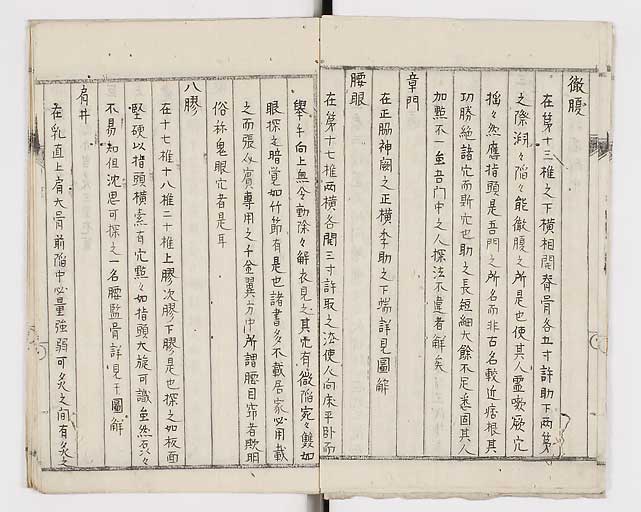 徹腹
在第十三椎之下横相開脊骨各五寸許肋下两第
之際洞々陥々能徹腹之所是也使其人虚嗽厥穴
揺々然應指頭是吾門之所名而非古名較近痞根其
功勝絶諸穴而斯穴也肋之長短細大餘不足悉固其人
加㸃不一至吾門中之人探法不違者鮮矣
章門
在正脇神闕之正横季肋之下端詳見圖解
腰眼
在第十七椎两横各開三寸許取之法使人向床平卧而
舉手向上無令動除々解衣見之其宛有微陥宛々雙如
眼探之暗覚如竹節有是也諸書多不載居家必用載
之而張從賓專用之千金翼方中所謂腰目窌者欤明
俗称鬼眼穴者是耳
八膠
在十七椎十八椎二十椎上膠次膠下膠是也探之如板面
堅硬以指頭横索有穴㸃々如指頭大旋可識虽然忽々
不易知但沈思可探之一名腰監骨詳見于圖解
肩井
在乳直上肩大骨前陥中必量強弱可灸之间有灸之